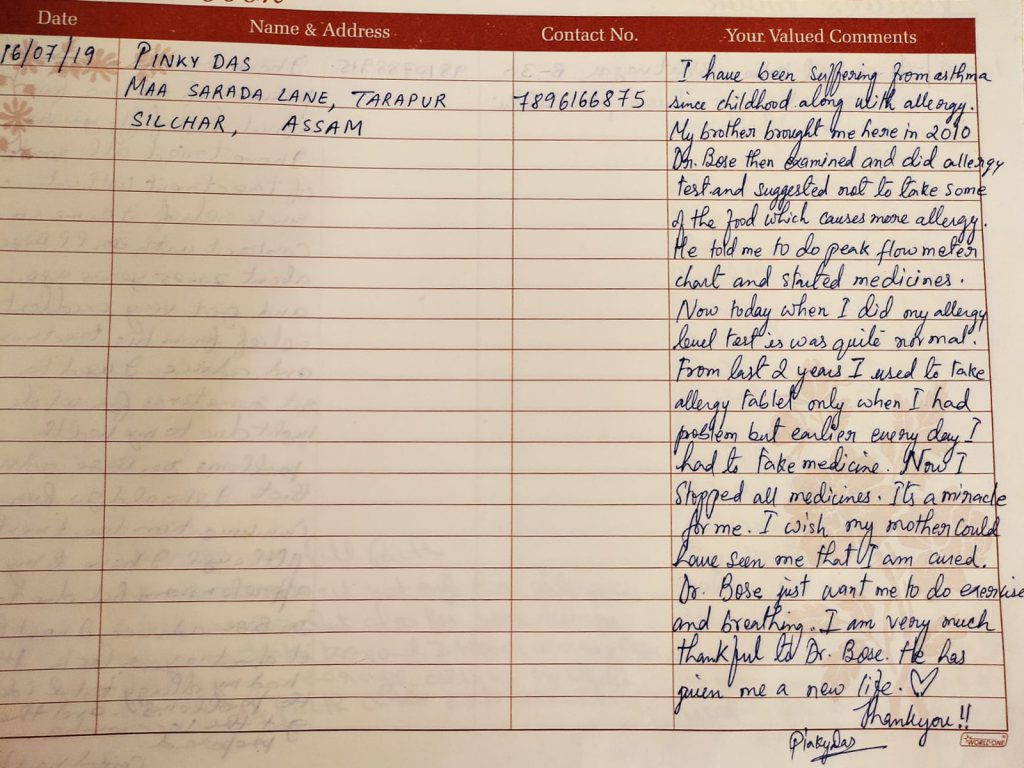 Date Name & Address Contact No. Your Valued Comments
16/07/19 PINKY DAS
MAA SARADA LANE, TARAPUR 7896166875
SILCHAR, ASSAM
I have been suffering from asthma
since childhood along with allergy.
My brother brought me here in 2010
Dr. Bose then examined and did allergy
test and suggested not to take some
of the food which causes more allergy.
He told me to do peak flow meter
chart and started medicines.
Now today when I did my allergy
level test is was quite normal.
From last 2 years I used to take
allergy tablet only when I had
problem but earlier every day I
had to take medicine. Now I
stopped all medicines. Its a miracle
for me. I wish my mother could
have seen me that I am cured.
Dr. Bose just want me to do exercise
and breathing. I am very much
thankful to Dr. Bose. He has
given me a new life. ♡
Thankyou!!
Pinky Das
WORLD-ONE